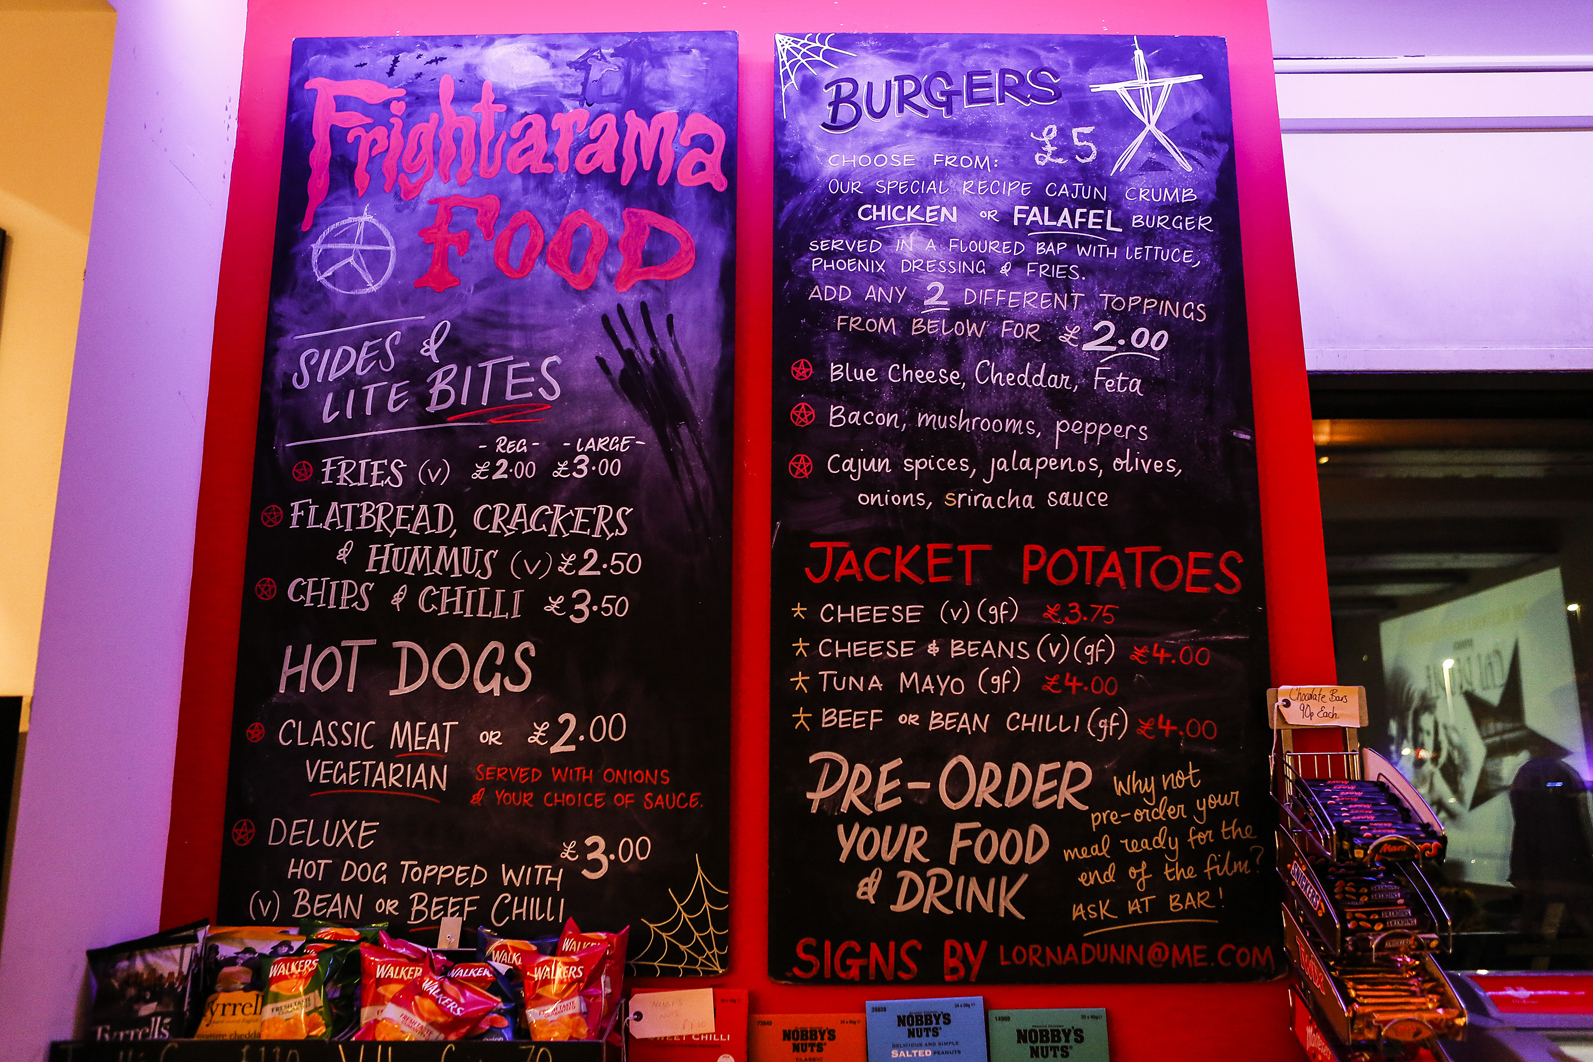 Frightarama
FOOD
SIDES &
LITE BITES
- REG - - LARGE -
FRIES (v) £2.00 £3.00
FLATBREAD, CRACKERS
& HUMMUS (v) £2.50
CHIPS & CHILLI £3.50
HOT DOGS
CLASSIC MEAT OR £2.00
VEGETARIAN
SERVED WITH ONIONS
& YOUR CHOICE OF SAUCE.
DELUXE
£3.00
HOT DOG TOPPED WITH
(v) BEAN OR BEEF CHILLI
BURGERS
£5
CHOOSE FROM:
OUR SPECIAL RECIPE CAJUN CRUMB
CHICKEN OR FALAFEL BURGER
SERVED IN A FLOURED BAP WITH LETTUCE,
PHOENIX DRESSING & FRIES.
ADD ANY 2 DIFFERENT TOPPINGS
FROM BELOW FOR £2.00
Blue Cheese, Cheddar, Feta
Bacon, mushrooms, peppers
Cajun spices, jalapenos, olives,
onions, sriracha sauce
JACKET POTATOES
CHEESE (v) (gf) £3.75
CHEESE & BEANS (v) (gf) £4.00
TUNA MAYO (gf) £4.00
BEEF OR BEAN CHILLI (gf) £4.00
PRE-ORDER
YOUR FOOD
& DRINK
Why not
pre-order your
meal ready for the
end of the film?
ASK AT BAR!
SIGNS BY LORNADUNN@ME.COM
Chocolate Bars
90p Each
Mars
SNICKERS
Tyrrells
yrrell
WALKERS
WALKER
WALKER
WALKERS
WALKERS
SWEET CHILLI
NOBBY'S
NUTS
CLASSIC
NOBBY'S
NUTS
DELICIOUS AND SIMPLE
SALTED PEANUTS
NOBBY'S
NUTS